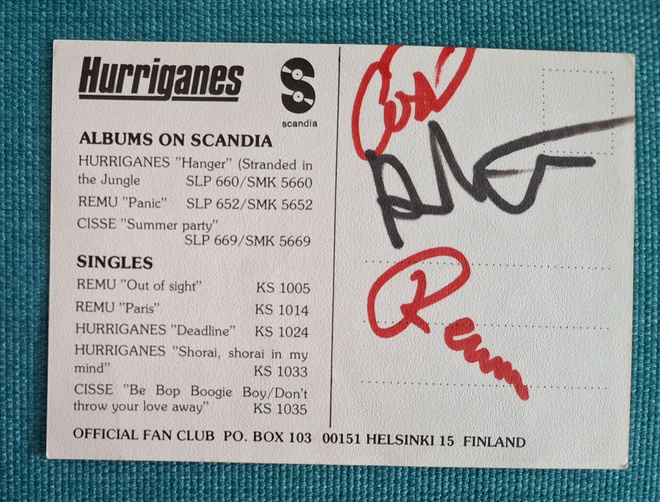 Hurriganes
scandia
ALBUMS ON SCANDIA
HURRIGANES "Hanger" (Stranded in
the Jungle SLP 660/SMK 5660
REMU "Panic" SLP 652/SMK 5652
CISSE "Summer party"
SLP 669/SMK 5669
SINGLES
REMU "Out of sight" KS 1005
REMU "Paris" KS 1014
HURRIGANES "Deadline" KS 1024
HURRIGANES "Shorai, shorai in my
mind" KS 1033
CISSE "Be Bop Boogie Boy/Don't
throw your love away" KS 1035
OFFICIAL FAN CLUB PO. BOX 103 00151 HELSINKI 15 FINLAND
Remu